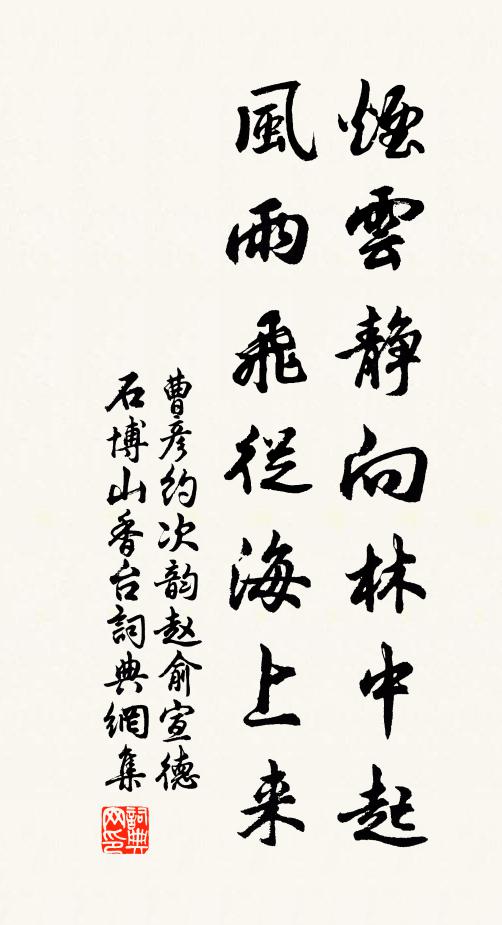 煙雲静向林中起
風雨飛從海上来
曹彦约次韵赵俞宣德
石博山香台詞典網集
詞典网印